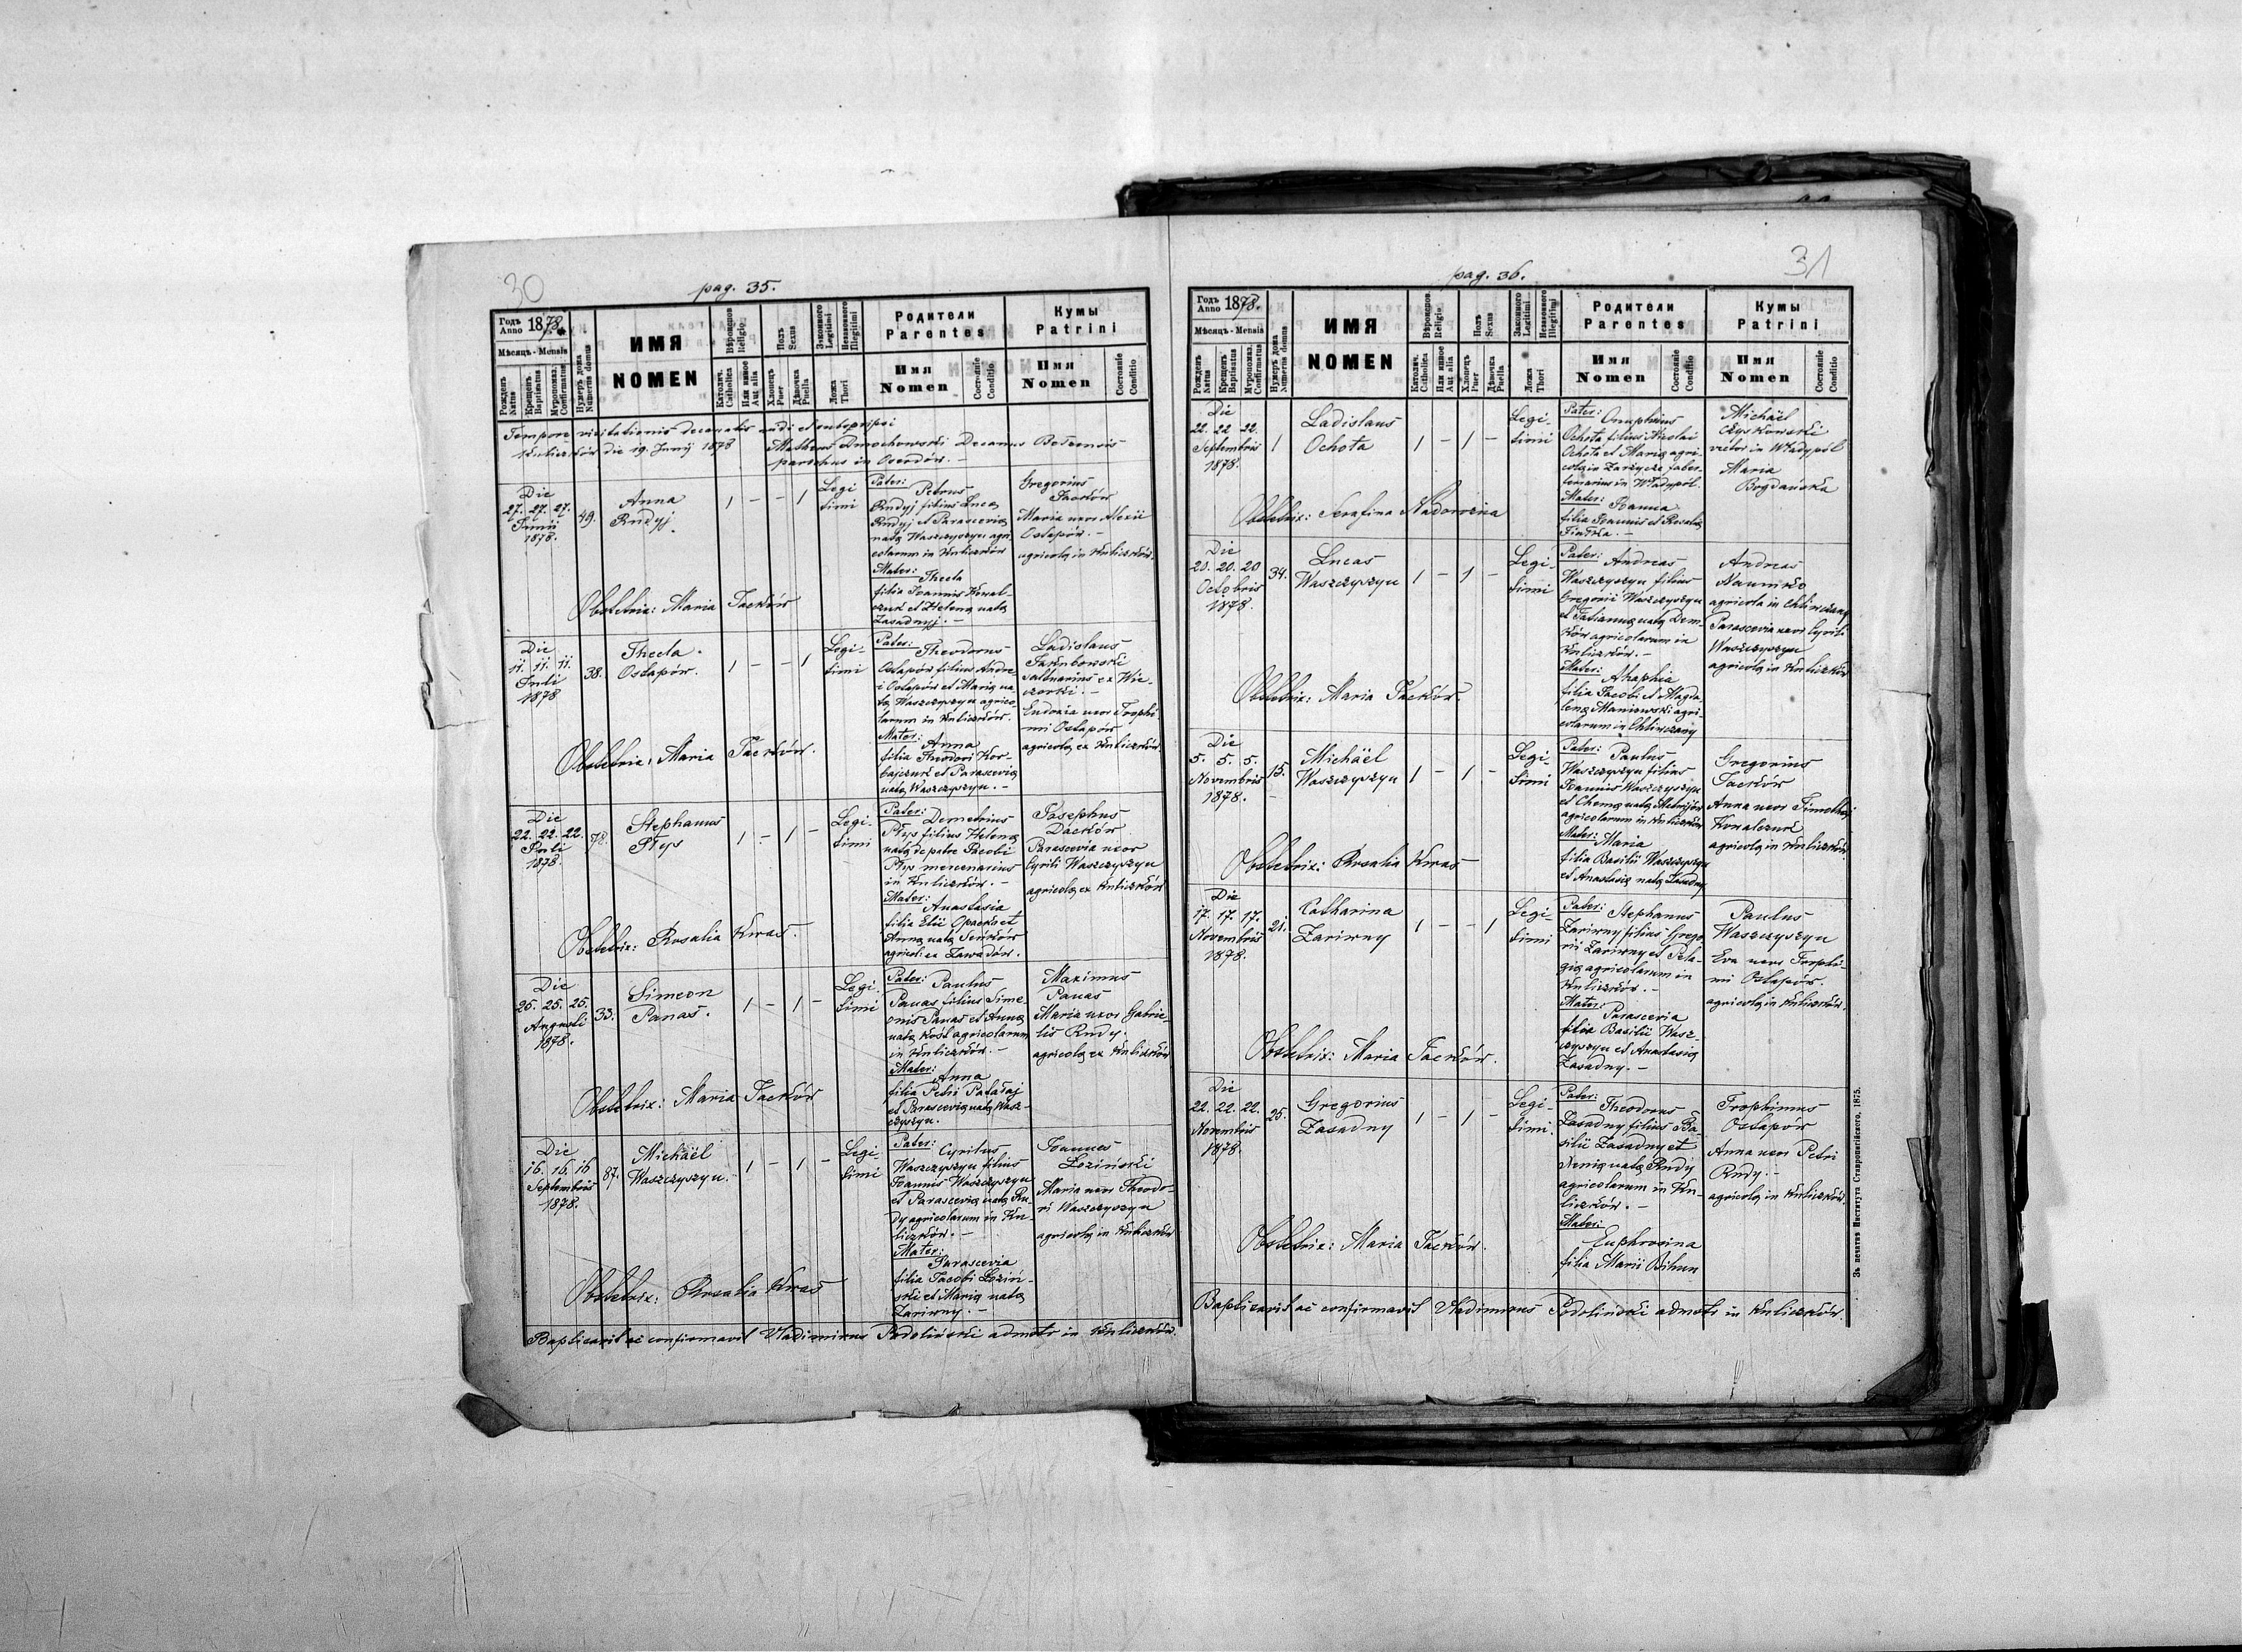 30
pag. 35.
Годъ Anno 1878.
Мѣсяцъ - Mensis
Рожденъ Natus
Крещенъ Baptisatus
Муропомаз. Confirmatus
Нумеръ дома Numerus domus
ИМЯ
NOMEN
Вѣроисповѣд. Religio
Католич. Catholica
Или инное Aut alia
Полъ Sexus
Хлопецъ Puer
Дѣвочка Puella
Законного Legitimi
Незаконного Illegitimi
Ложа Thori
Родители
Parentes
Имя Nomen
Состояніе Conditio
Кумы
Patrini
Имя Nomen
Состояніе Conditio
Tempore visitationis decanalis
Kuliczków die 19. Junij 1878
Decanus
parochus in
Die
27. 27. 27.
Junii
1878.
49.
Anna
Rudyj.
1 - - 1
Legi
timi
Pater:
Petrus
Rudyj filius Lucę
Rudyj et Parascevię
natę Waszczyszyn agri
colarum in Kuliczków
Mater:
Thecla
filia Joannis Kowal-
czuk et Helenę natę
Zasadnyj. -
Gregorius
Jaćków
Maria uxor Alexii
Ostapów. -
agricolę in Kuliczków.
Obstetrix: Maria Jaćków
Die
11. 11. 11.
Juli
1878
38.
Thecla.
Ostapów.
1 - - 1
Legi-
timi
Pater:
Theodorus
Ostapów filius Andre-
i Ostapów et Marię na
tę Waszczyszyn agrico-
larum in Kuliczków.
Mater:
Anna
filia Theodori
et Parascevię
natę Waszczyszyn. -
Ladislaus
Jakubowski
ex
Eudoxia uxor Trophi
mi Ostapów
agricolę ex Kuliczków.
Obstetrix: Maria Jaćków.
Die
22. 22. 22.
Juli
1878.
78.
Stephanus
Ptyś
1 - 1 -
Legi-
timi
Pater:
Demetrius
Ptyś filius Helenę
natę de patre Jacobi
Ptyś mercenarius
in Kuliczków. -
Mater:
Anastasia
filia Elii et
Annę natę Seńków
agricoli ex Zawadów.
Josephus
Daćków
Parascevia uxor
Cyrili Waszczyszyn
agricolę ex Kuliczków
Obstetrix: Rosalia Kwaś.
Die
25. 25. 25.
Augusti
1878.
33.
Simeon
Panas.
1 - 1 -
Legi.
timi
Pater: Paulus
Panas filius Sime-
onis Panas et Annę
natę Kost agricolarum
in Kuliczków. -
Mater:
Anna
filia Petri
et Parascevię natę Wasz-
czyszyn.
Maximus
Panas
Maria uxor Gabrie-
lis Rudy.
agricolę ex Kuliczków
Obstetrix: Maria Jaćków
Die
16. 16. 16
Septembris
1878.
87.
Michäel
Waszczyszyn.
1 - 1 -
Legi-
timi
Pater:
Cyrilus
Waszczyszyn filius
Joannis Waszczyszyn
et Parascevię natę Ru-
dy agricolarum in Ku-
liczków. -
Mater:
Parascevia
filia Jacobi Loziń-
ski et Marię natę
Zariwny. -
Joannes
Loziński
Maria uxor Theodo-
ri Waszczyszyn
agricolę in Kuliczków
Obstetrix: Rosalia Kwaś
Baptisavit ac confirmavit Vladimirus Podoliński admstr in Kuliczków.
31
pag. 36.
Годъ Anno 1878.
Мѣсяцъ - Mensis
Рожденъ Natus
Крещенъ Baptisatus
Муропомаз. Confirmatus
Нумеръ дома Numerus domus
ИМЯ
NOMEN
Вѣроисповѣд. Religio
Католич. Catholica
Или инное Aut alia
Полъ Sexus
Хлопецъ Puer
Дѣвочка Puella
Законного Legitimi
Незаконного Illegitimi
Ложа Thori
Родители
Parentes
Имя Nomen
Состояніе Conditio
Кумы
Patrini
Имя Nomen
Состояніе Conditio
Die
22. 22. 22.
Septembris
1878.
1
Ladislaus
Ochota
1 - 1 -
Legi-
timi
Pater: Onuphrius
Ochota filius Nicolai
Ochota et Marię agri-
colę in Zarzycze faber-
ferrarius in Władypól.
Mater: Joanna
filia Joannis et Rosalię
Michäel
Czyskowski
rector in Władypól
Maria
Bogdańska
Obstetrix: Serafina Nadworna
Die
20. 20. 20
Octobris
1878.
34.
Lucas
Waszczyszyn
1 - 1 -
Legi-
timi
Pater: Andreas
Waszczyszyn filius
Gregorii Waszczyszyn
et Tatiannę natę Dem-
ków agricolarum in
Kuliczków. -
Mater: Ahaphia
filia Jacobi et Magda
lenę Maniowski agri-
colarum in Chliwczany
Andreas
Naumko
agricola in Chliwczany
Parascevia uxor Cyrili
Waszczyszyn
agricolę in Kuliczków
Obstetrix: Maria Jaćków.
Die
5. 5. 5.
Novembris
1878.
15.
Michäel
Waszczyszyn
1 - 1 -
Legi-
timi
Pater: Paulus
Waszczyszyn filius
Joannis Waszczyszyn
et natę
agricolarum in Kuliczków
Mater: Maria
filia Basilii Waszczyszyn
et Anastasię natę Zasadny
Gregorius
Jaćków
Anna uxor Timothei
Kowalczuk
agricolę in Kuliczków.
Obstetrix: Rosalia Kwaś
Die
17. 17. 17.
Novembris
1878.
21.
Catharina
Zariwny
1 - - 1
Legi-
timi
Pater: Stephanus
Zariwny filius Grego
rii Zariwny et Pela-
gię agricolarum in
Kuliczków. -
Mater:
Parascevia
filia Basilii Wasz-
czyszyn et Anastasię
Zasadny. -
Paulus
Waszczyszyn
Eva uxor Trophi-
mi Ostapów.
agricolę in Kuliczków.
Obstetrix: Maria Jaćków.
Die
22. 22. 22.
Novembris
1878.
25.
Gregorius
Zasadny
1 - 1 -
Legi-
timi.
Pater:
Theodorus
Zasadny filius Ba-
silii Zasadny et
Xenię natę Rudy
agricolarum in Ku-
liczków. -
Mater:
Euphrosina
filia Marii Bihun
Trophimus
Ostapów
Anna uxor Petri
Rudy. -
agricolę in Kuliczków.
Obstetrix: Maria Jaćków.
Baptisavit ac confirmavit Vladimirus Podoliński admstr in Kuliczków.
Зъ печатнѣ Института Ставропигійского, 1875.